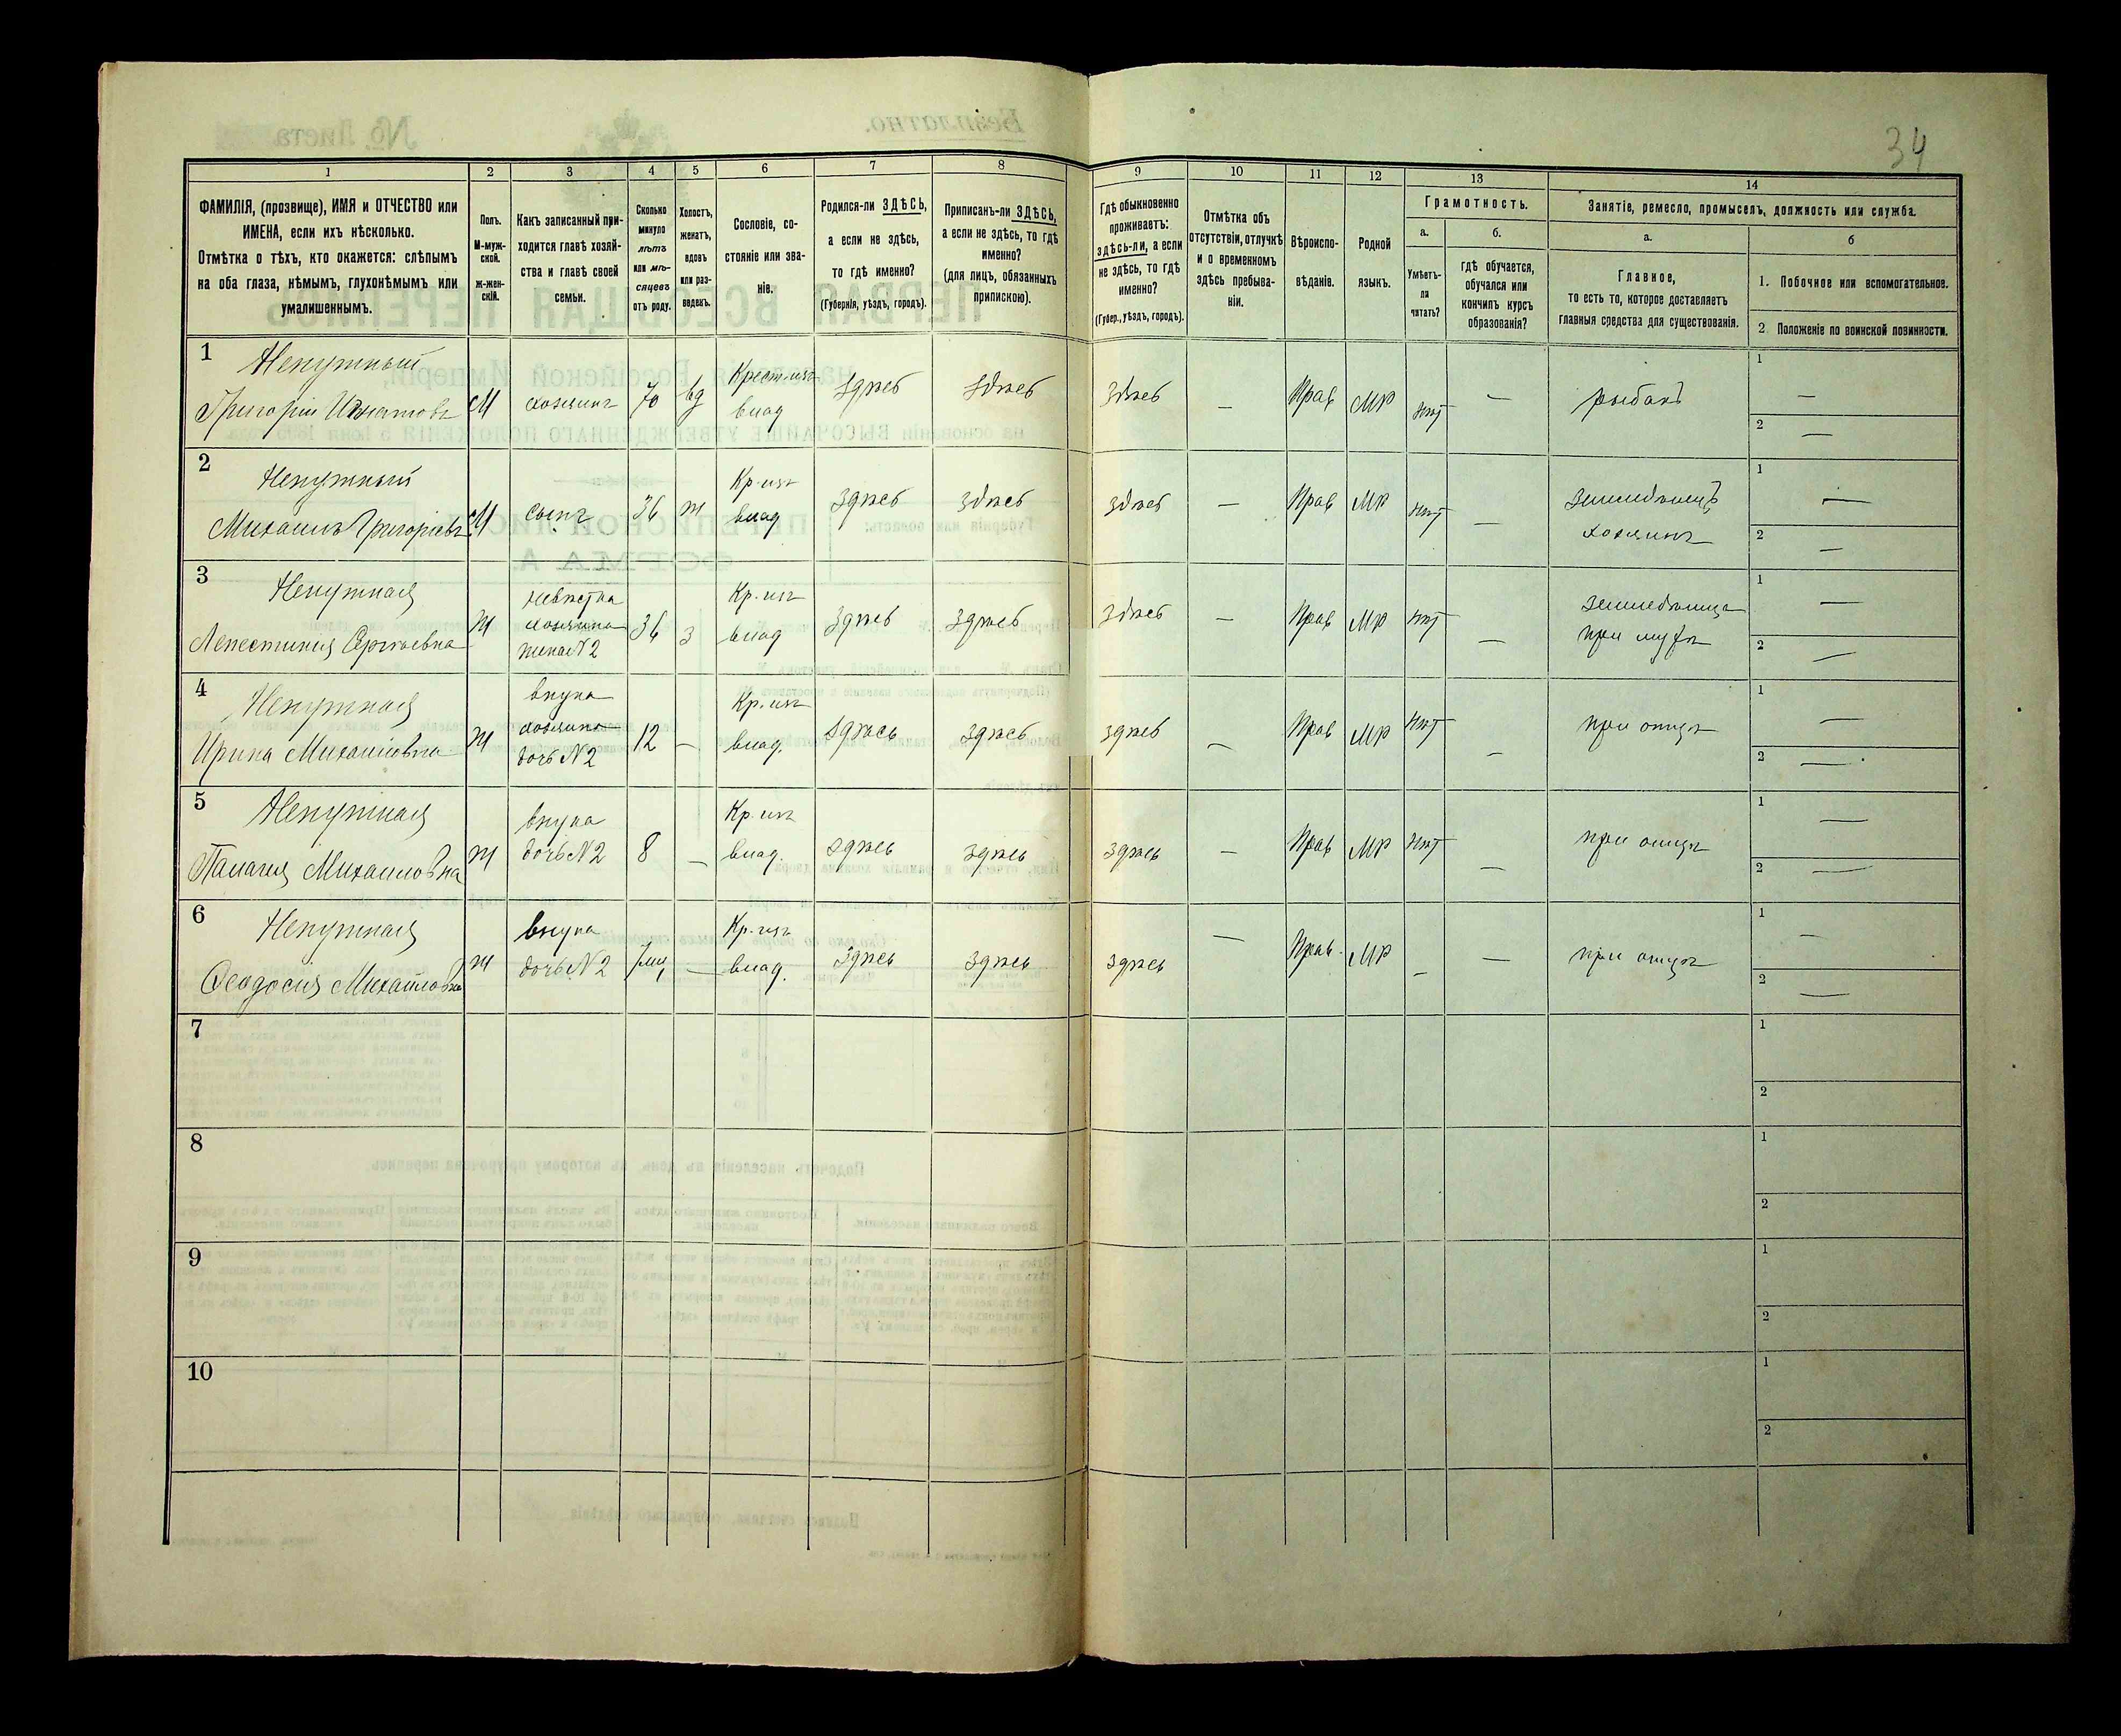 34
1 2 3 4 5 6 7 8 9 10 11 12 13 14
ФАМИЛІЯ, (прозвище), ИМЯ и ОТЧЕСТВО или
ИМЕНА, если ихъ нѣсколько.
Отмѣтка о тѣхъ, кто окажется: слѣпымъ
на оба глаза, нѣмымъ, глухонѣмымъ или
умалишеннымъ.
Полъ.
М-муж-
ской.
Ж-жен-
скій.
Какъ записанный при-
ходится главѣ хозяй-
ства и главѣ своей
семьи.
Сколько
минуло
лѣтъ
или мѣ-
сяцевъ
отъ роду.
Холостъ,
женатъ,
вдовъ
или раз-
веденъ.
Сословіе, со-
стояніе или зва-
ніе.
Родился-ли ЗДѢСЬ,
а если не здѣсь,
то гдѣ именно?
(Губернія, уѣздъ, городъ).
Приписанъ-ли ЗДѢСЬ,
а если не здѣсь, то гдѣ
именно?
(для лицъ, обязанныхъ
припискою).
Гдѣ обыкновенно
проживаетъ:
здѣсь-ли, а если
не здѣсь, то гдѣ
именно?
(Губер., уѣздъ, городъ).
Отмѣтка объ
отсутствіи, отлучкѣ
и о временномъ
здѣсь пребыва-
ніи.
Вѣроиспо-
вѣданіе.
Родной
языкъ.
Грамотность.
а.
Умѣетъ-
ли
читать?
б.
гдѣ обучается,
обучался или
кончилъ курсъ
образованія?
Занятіе, ремесло, промыселъ, должность или служба.
а.
Главное,
то есть то, которое доставляетъ
главныя средства для существованія.
б
1. Побочное или вспомогательное.
2 Положеніе по воинской повинности.
1 Ненужный
Григорій Игнатовъ М хозяинъ 70 вд Крест. изъ
влад здѣсь здѣсь здѣсь — Прав МР нѣт — рыбакъ 1 —
2 —
2 Ненужный
Михаилъ Григоріевъ М сынъ 36 ж Кр. изъ
влад здѣсь здѣсь здѣсь — Прав МР нѣт — земледѣлецъ
хозяинъ 1 —
2 —
3 Ненужная
Ж невѣстка
хозяина
жена N2 36 з Кр. изъ
влад здѣсь здѣсь здѣсь — Прав МР нѣт —
при мужѣ 1 —
2 —
4 Ненужная
Ирина Михайловна Ж внука
хозяина
дочь N2 12 — Кр. изъ
влад. здѣсь здѣсь здѣсь — Прав МР нѣт — при отцѣ 1 —
2 —
5 Ненужная
Палагія Михайловна Ж внука
дочь N2 8 — Кр. изъ
влад. здѣсь здѣсь здѣсь — Прав МР нѣт — при отцѣ 1 —
2 —
6 Ненужная
Ѳеодосія Михайловна Ж внука
дочь N2 — Кр. изъ
влад. здѣсь здѣсь здѣсь — Прав. МР — — при отцѣ 1 —
2 —
7 1
2
8 1
2
9 1
2
10 1
2